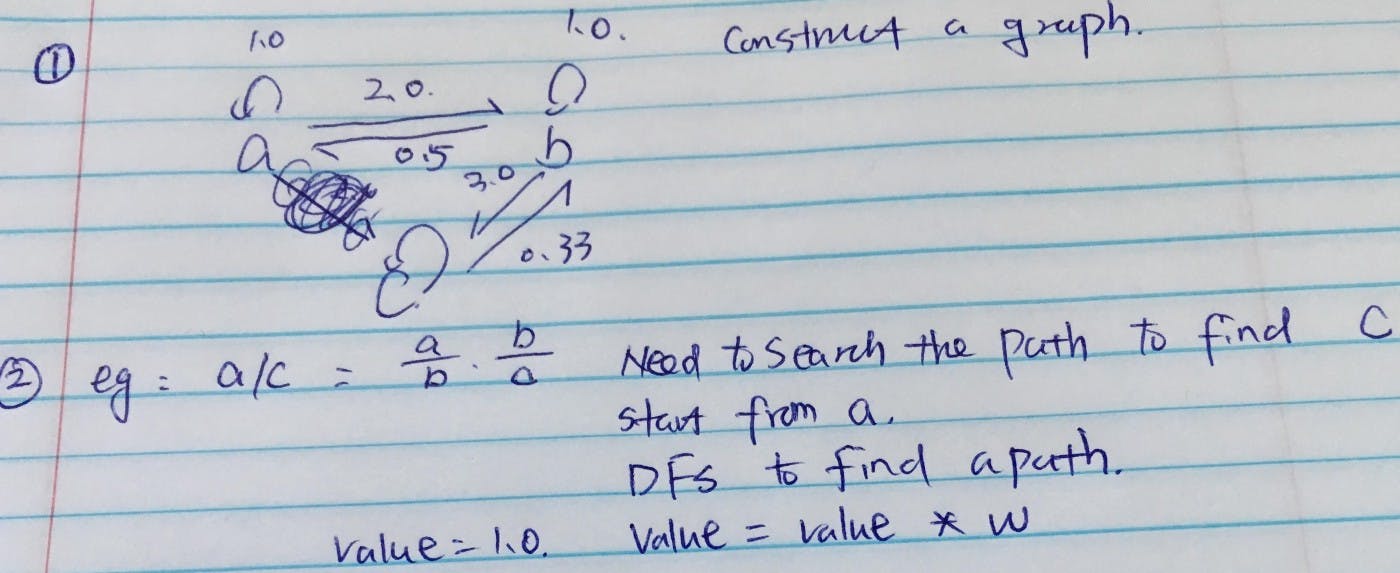 ① 1.0 1.0. Construct a graph.
2.0.
a 0.5 b
3.0
0.33
c
② eg: a/c = a/b · b/c Need to search the path to find C
start from a.
DFS to find a path.
value = 1.0. Value = value * w